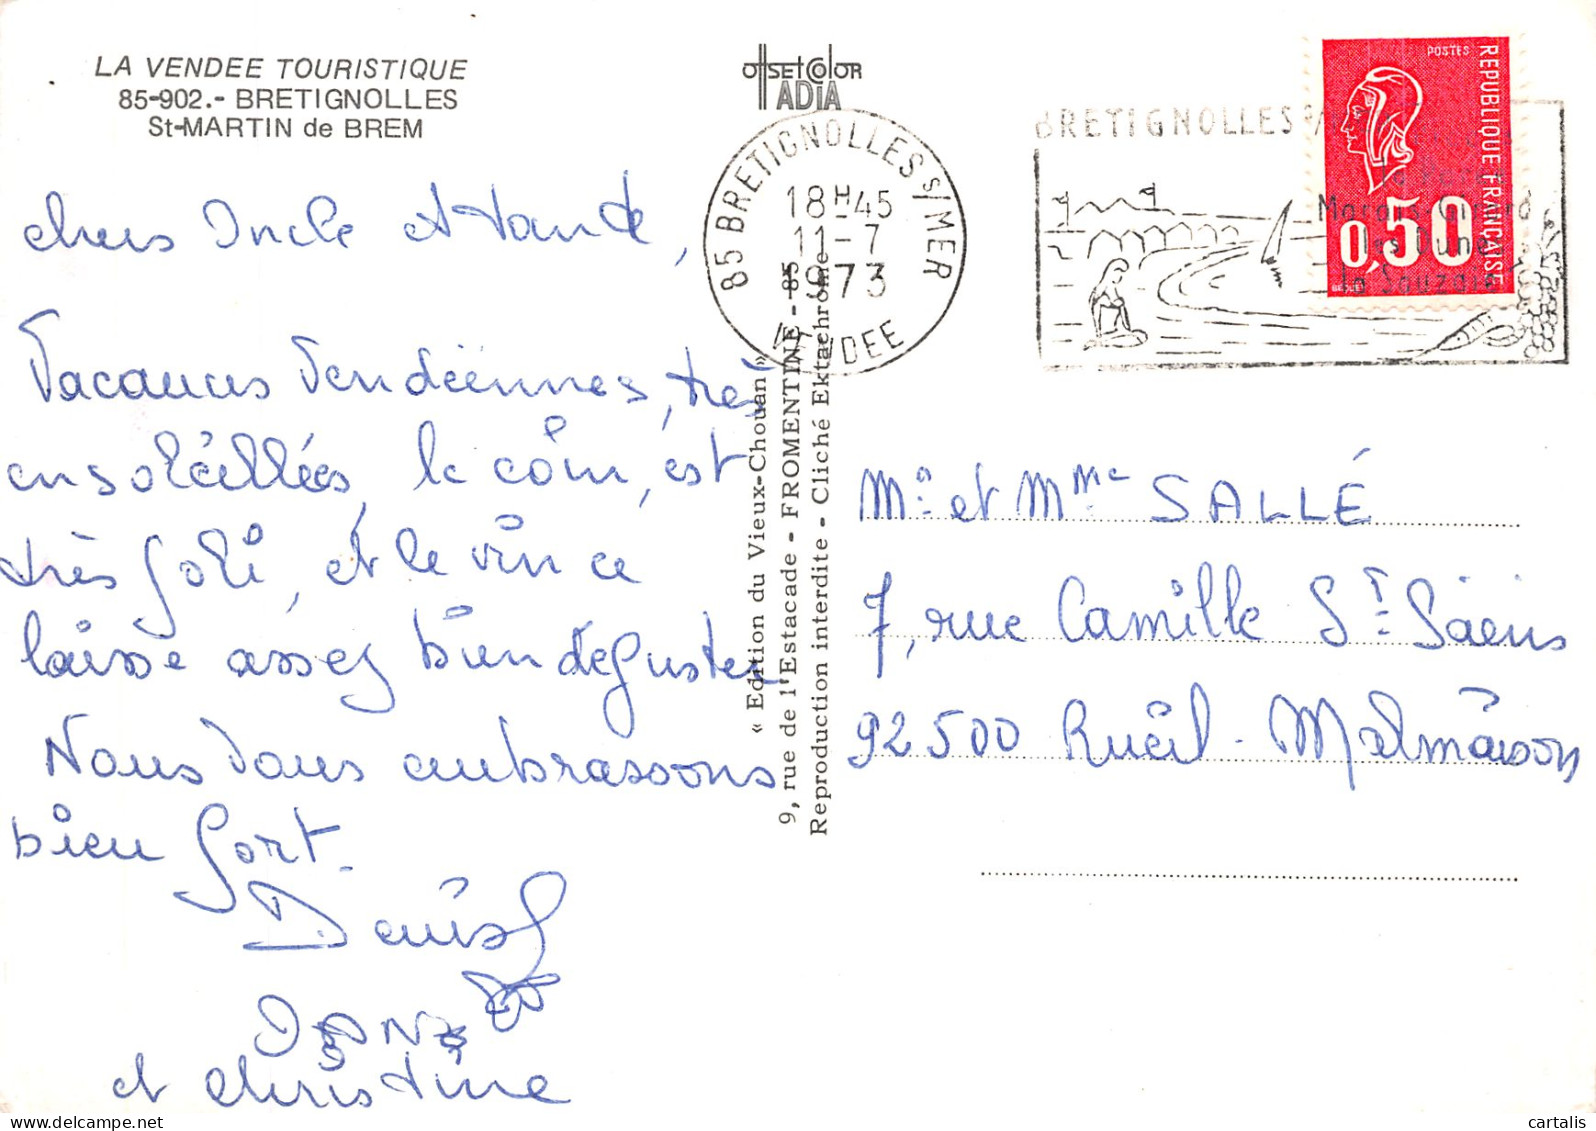 LA VENDEE TOURISTIQUE
85-902.- BRETIGNOLLES
St-MARTIN de BREM
offset color
ADIA
chers Oncle et tante,
Vacances Vendéennes, très
ensoleillées, le coin, est
très joli, et le vin ce
laisse assez bien déguster
Nous vous embrassons
bien fort.
Denise
et christine
« Edition du Vieux-Chouan »
9, rue de l'Estacade - FROMENTINE - 85
Reproduction interdite - Cliché Ektachrome
85 BRETIGNOLLES S/MER
18H-45
11-7
1973
VENDEE
BRETIGNOLLES S/
Marais Girard
les Dunes
la Sauzaie
POSTES
REPUBLIQUE FRANÇAISE
0,50
Mr et Mme SALLÉ
7, rue Camille St Saëns
92500 Rueil-Malmaison
cartalis